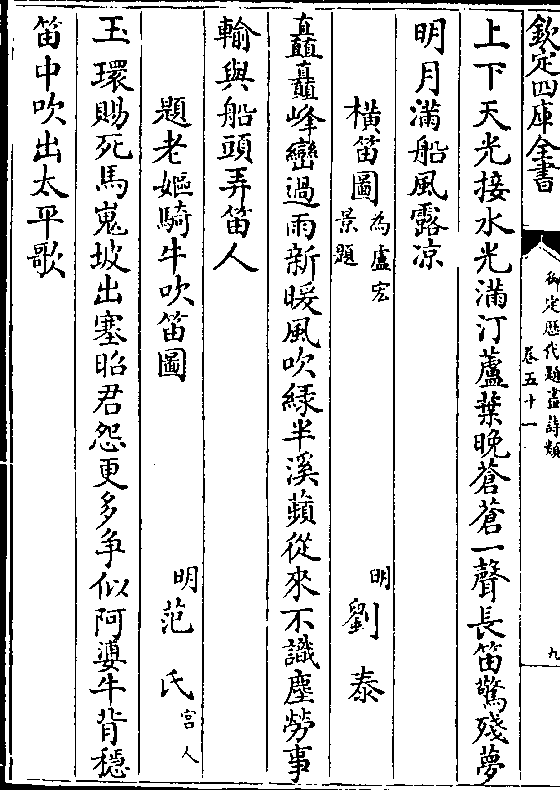 欽定四庫全書
御定歷代題畫詩類
卷五十一
九
上下天光接水光滿汀蘆葉晚蒼蒼一聲長笛驚殘夢
明月滿船風露凉
橫笛圖為盧宏景題
明劉泰
矗矗峰巒過雨新暖風吹緑半溪蘋從來不識塵勞事
輸與船頭弄笛人
題老嫗騎牛吹笛圖
明范氏宫人
玉環賜死馬嵬坡出塞昭君怨更多争似阿婆牛背穏
笛中吹出太平歌